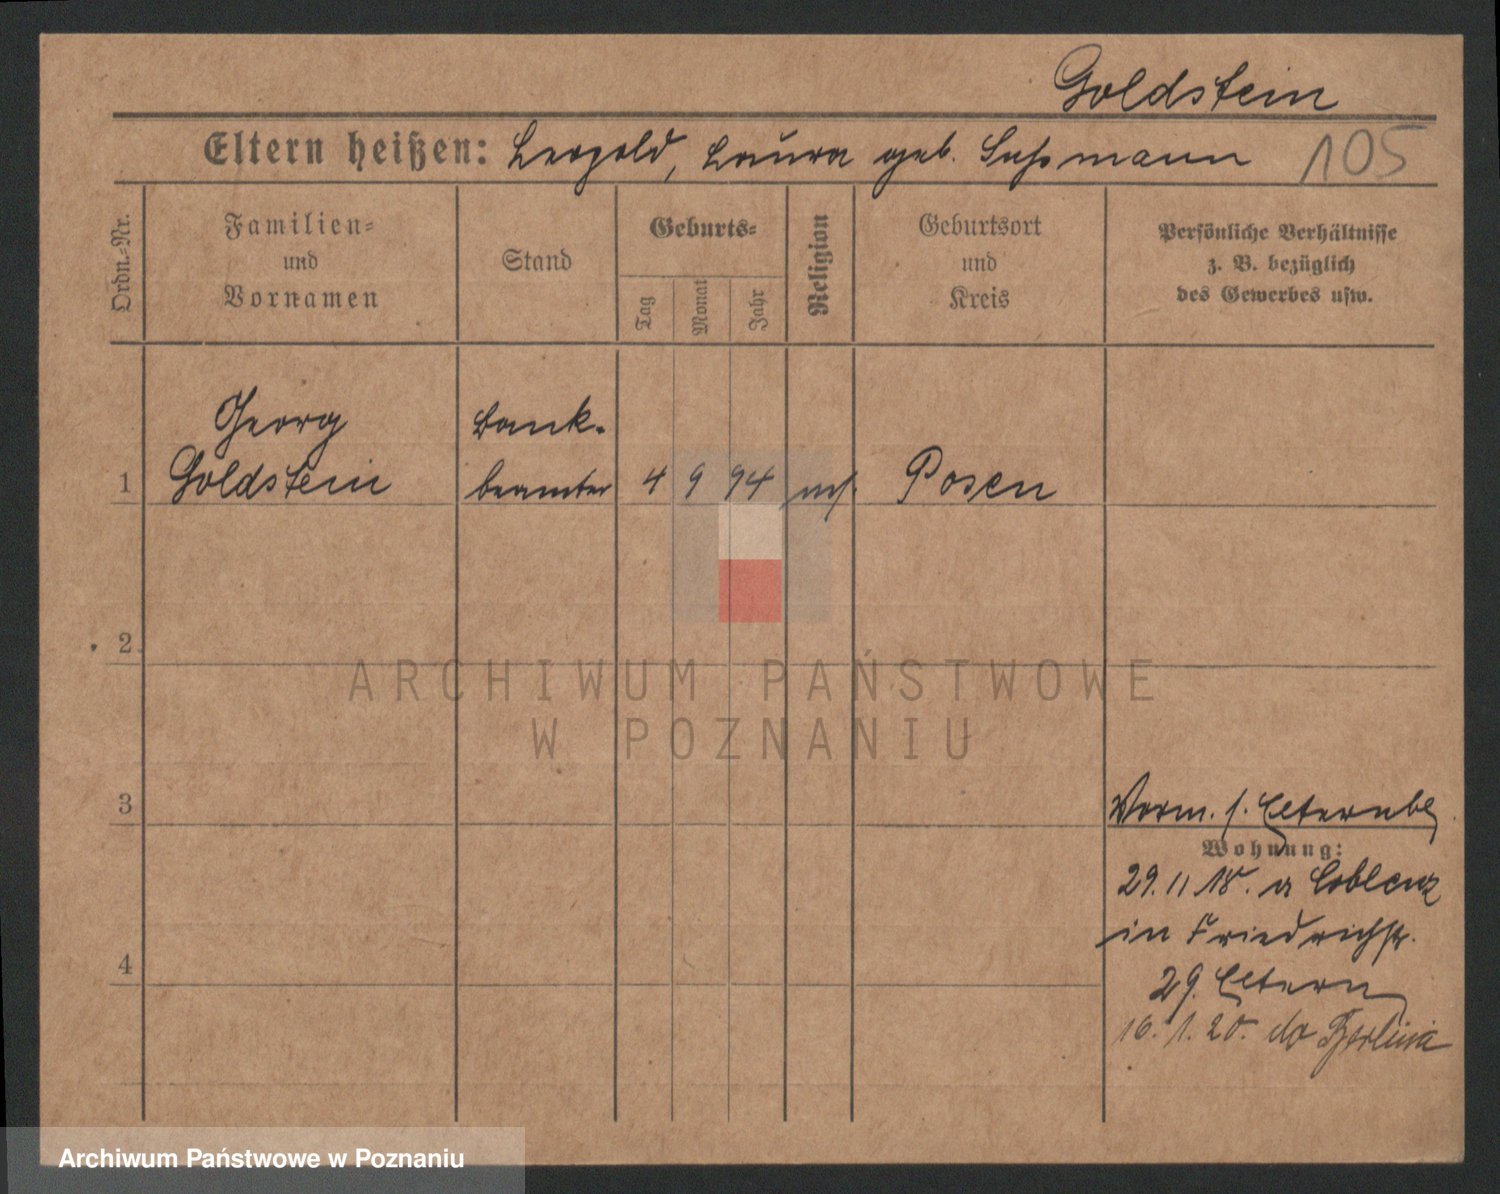 Goldstein
Eltern heißen: Leopold, Laura geb. Sußmann 105
Ordn.-Nr.
Familien-
und
Vornamen
Stand
Geburts-
Tag
Monat
Jahr
Religion
Geburtsort
und
Kreis
Persönliche Verhältnisse
z. B. bezüglich
des Gewerbes usw.
Georg Bank-
1 Goldstein beamter 4 9 94 mos. Posen
2
ARCHIWUM PAŃSTWOWE
W POZNANIU
3
Vorm. s. Elternbl
Wohnung:
29. 11 18. a Coblenz
in Friedrichstr.
4
29. Eltern
16. 1. 20. do Berlina
Archiwum Państwowe w Poznaniu